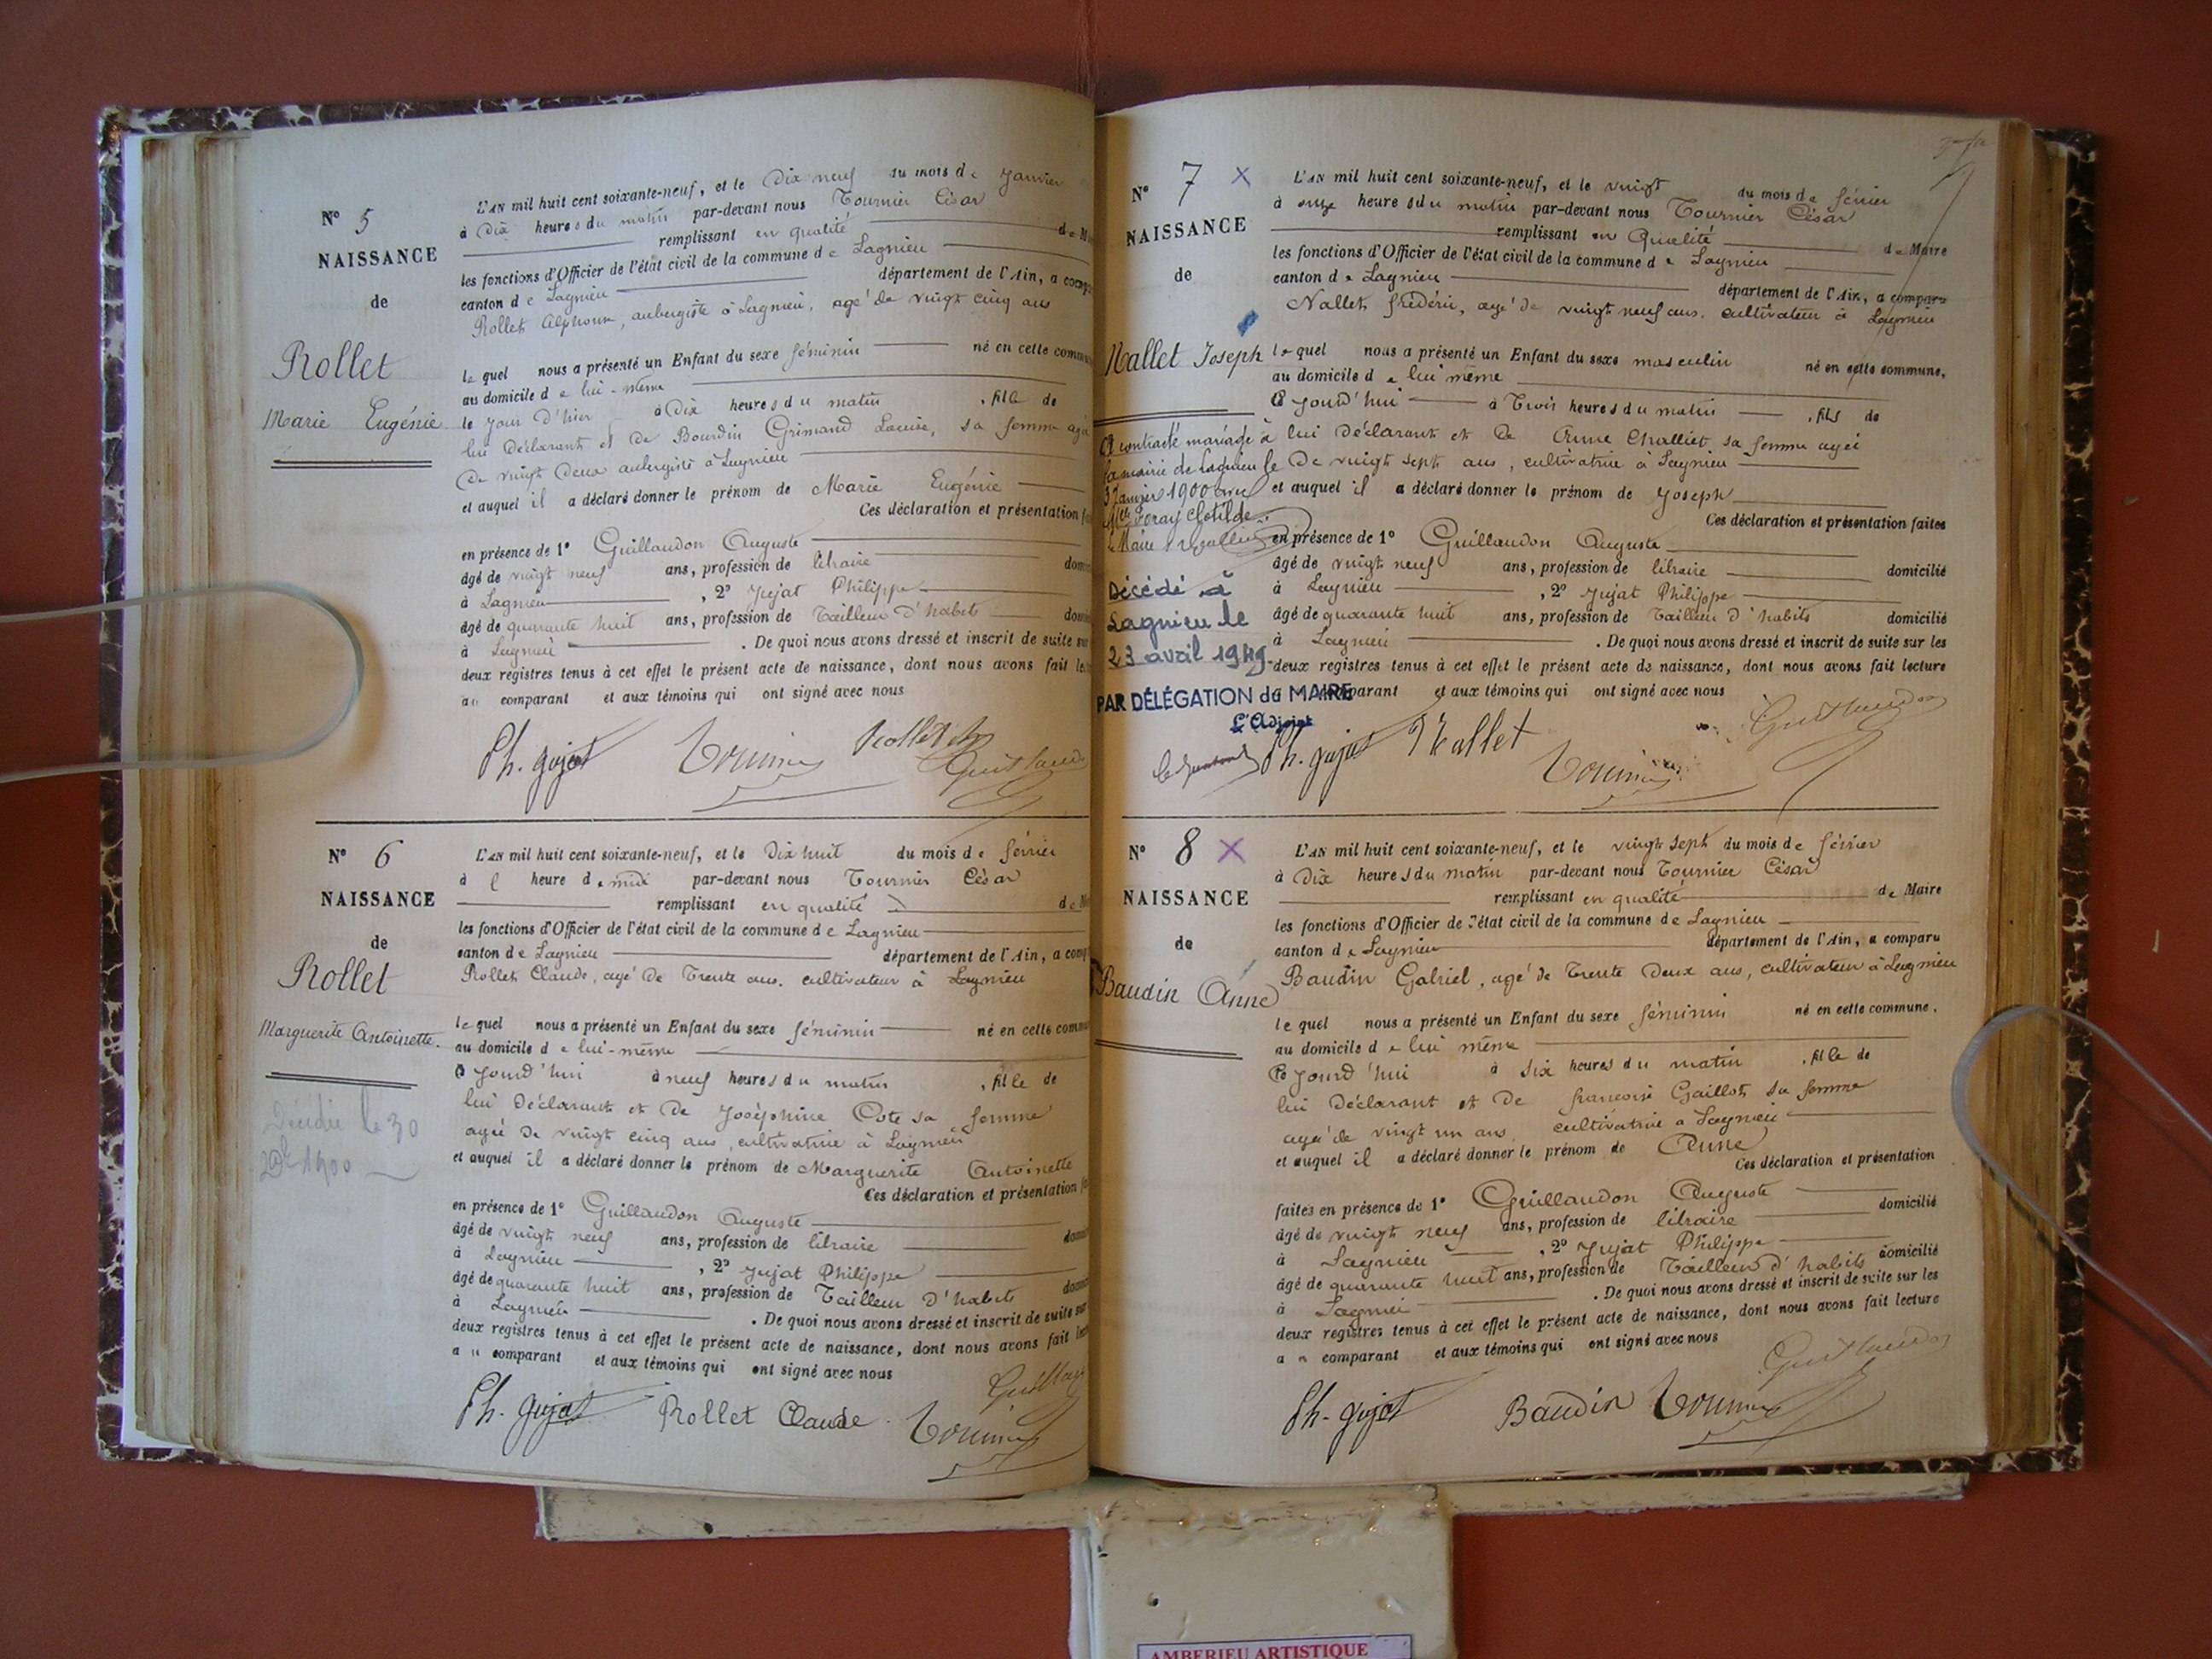 N° 5
NAISSANCE
de
Rollet
Marie Eugénie
L'AN mil huit cent soixante-neuf, et le Dix neuf du mois de Janvier
à Dix heures du matin par-devant nous Tournier César
remplissant en qualité de M
les fonctions d'Officier de l'état civil de la commune de Lagnieu
canton de Lagnieu département de l'Ain, a comp
Rollet Alphonse, aubergiste à Lagnieu, agé de vingt cinq ans
lequel nous a présenté un Enfant du sexe féminin né en cette commu
au domicile de lui-même
le jour d'hier à Dix heures du matin , fille de
lui Déclarant et de Bourdin Grimand Louise, sa femme agé
de vingt Deux aubergiste à Lagnieu
et auquel il a déclaré donner le prénom de Marie Eugénie
Ces déclaration et présentation f
en présence de 1° Guillaudon Auguste
âgé de vingt neuf ans, profession de libraire dom
à Lagnieu , 2° Jujat Philippe
âgé de quarante huit ans, profession de Tailleur d'habits domi
à Lagnieu . De quoi nous avons dressé et inscrit de suite sur
deux registres tenus à cet effet le présent acte de naissance, dont nous avons fait le
au comparant et aux témoins qui ont signé avec nous
Ph. Jujat Tournier Rollet Guillaud
N° 6
NAISSANCE
de
Rollet
Marguerite Antoinette.
Décédée le 30
1900
L'AN mil huit cent soixante-neuf, et le Dix huit du mois de février
à l heure de midi par-devant nous Tournier César
remplissant en qualité de M
les fonctions d'Officier de l'état civil de la commune de Lagnieu
canton de Lagnieu département de l'Ain, a comp
Rollet Claude, agé de Trente ans. cultivateur à Lagnieu
lequel nous a présenté un Enfant du sexe féminin né en cette commu
au domicile de lui-même
Cejourd'hui à neuf heures du matin , fille de
lui Déclarant et de Joséphine Cote sa femme
agée de vingt cinq ans, cultivatrice à Lagnieu
et auquel il a déclaré donner le prénom de Marguerite Antoinette
Ces déclaration et présentation fa
en présence de 1° Guillaudon Auguste
âgé de vingt neuf ans, profession de libraire domi
à Lagnieu , 2° Jujat Philippe
âgé de quarante huit ans, profession de Tailleur d'habits domi
à Lagnieu . De quoi nous avons dressé et inscrit de suite sur
deux registres tenus à cet effet le présent acte de naissance, dont nous avons fait lect
au comparant et aux témoins qui ont signé avec nous
Ph. Jujat Rollet Claude Tournier Guillau
N° 7 X
NAISSANCE
de
Nallet Joseph
A contracté mariage à
la mairie de Lagnieu le
3 Janvier 1900 avec
Clotilde
le Maire
Décédé à
Lagnieu le
23 avril 1949.
PAR DÉLÉGATION du MAIRE
L'Adjoint
L'AN mil huit cent soixante-neuf, et le vingt du mois de février
à onze heures du matin par-devant nous Tournier César
remplissant en Qualité de Maire
les fonctions d'Officier de l'état civil de la commune de Lagnieu
canton de Lagnieu département de l'Ain, a comparu
Nallet frédéric, agé de vingt neuf ans. cultivateur à Lagnieu
lequel nous a présenté un Enfant du sexe masculin né en cette commune,
au domicile de lui même
Cejourd'hui à Trois heures du matin , fils de
lui Déclarant et de Anne Challiet, sa femme agée
De vingt sept ans, cultivatrice à Lagnieu
et auquel il a déclaré donner le prénom de Joseph
Ces déclaration et présentation faites
en présence de 1° Guillaudon Auguste
âgé de vingt neuf ans, profession de libraire domicilié
à Lagnieu , 2° Jujat Philippe
âgé de quarante huit ans, profession de Tailleur d'habits domicilié
à Lagnieu . De quoi nous avons dressé et inscrit de suite sur les
deux registres tenus à cet effet le présent acte de naissance, dont nous avons fait lecture
comparant et aux témoins qui ont signé avec nous
Ph. Jujat Nallet Tournier Guillaudon
N° 8 X
NAISSANCE
de
Baudin Anne
L'AN mil huit cent soixante-neuf, et le vingt sept du mois de février
à Dix heures du matin par-devant nous Tournier César
remplissant en qualité de Maire
les fonctions d'Officier de l'état civil de la commune de Lagnieu
canton de Lagnieu département de l'Ain, a comparu
Baudin Gabriel, agé de Trente Deux ans, cultivateur à Lagnieu
lequel nous a présenté un Enfant du sexe féminin né en cette commune.
au domicile de lui même
Cejourd'hui à six heures du matin , fille de
lui Déclarant et de françoise Gaillot, sa femme
agée de vingt un ans, cultivatrice à Lagnieu
et auquel il a déclaré donner le prénom de Anne
Ces déclaration et présentation
faites en présence de 1° Guillaudon Auguste
âgé de vingt neuf ans, profession de libraire domicilié
à Lagnieu , 2° Jujat Philippe
âgé de quarante huit ans, profession de Tailleur d'habits domicilié
à Lagnieu . De quoi nous avons dressé et inscrit de suite sur les
deux registres tenus à cet effet le présent acte de naissance, dont nous avons fait lecture
au comparant et aux témoins qui ont signé avec nous
Ph. Jujat Baudin Tournier Guillaudon
AMBERIEU ARTISTIQUE